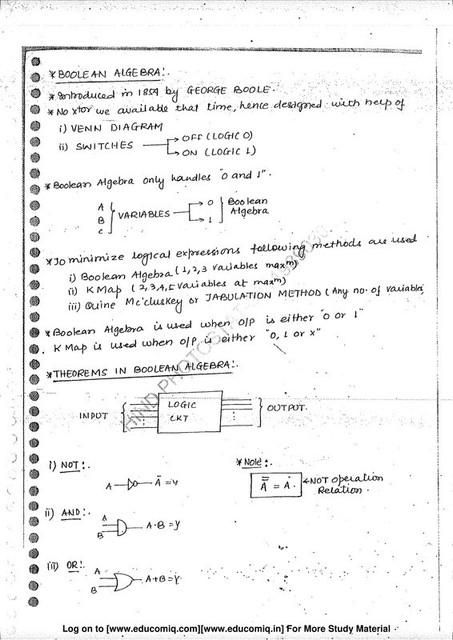 * BOOLEAN ALGEBRA:.
* Introduced in 1854 by GEORGE BOOLE.
* No xtor we available that time, hence designed with help of
i) VENN DIAGRAM
ii) SWITCHES
OFF (LOGIC 0)
ON (LOGIC 1)
* Boolean Algebra only handles "0 and 1".
A
B
C
VARIABLES
0
1
Boolean
Algebra
* To minimize logical expressions following methods are used
i) Boolean Algebra (1,2,3 variables maxm)
ii) K Map (2,3,4,5 variables at maxm)
iii) Quine Mc'cluskey or TABULATION METHOD (Any no. of variables
* Boolean Algebra is used when O/P is either "0 or 1"
K Map is used when O/P is either "0, 1 or x"
* THEOREMS IN BOOLEAN ALGEBRA:.
INPUT
LOGIC
CKT
OUTPUT.
i) NOT:.
A
Ā = Y
* Note:.
A̿ = A.
←NOT operation
Relation.
ii) AND:.
A
B
A·B = Y
(ii) OR:.
A
B
A+B = Y
HIND PHOTOSTAT
Log on to [www.educomiq.com][www.educomiq.in] For More Study Material